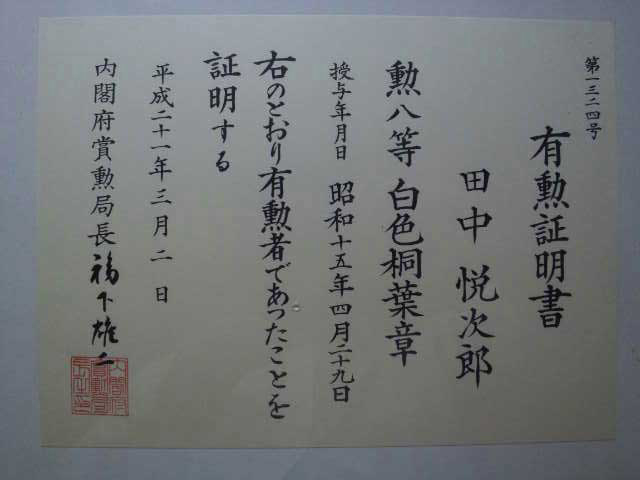 第一三二四号
有勲証明書
田中悦次郎
勲八等白色桐葉章
授与年月日 昭和十五年四月二十九日
右のとおり有勲者であったことを
証明する
平成二十一年三月二日
内閣府賞勲局長 福下雄二